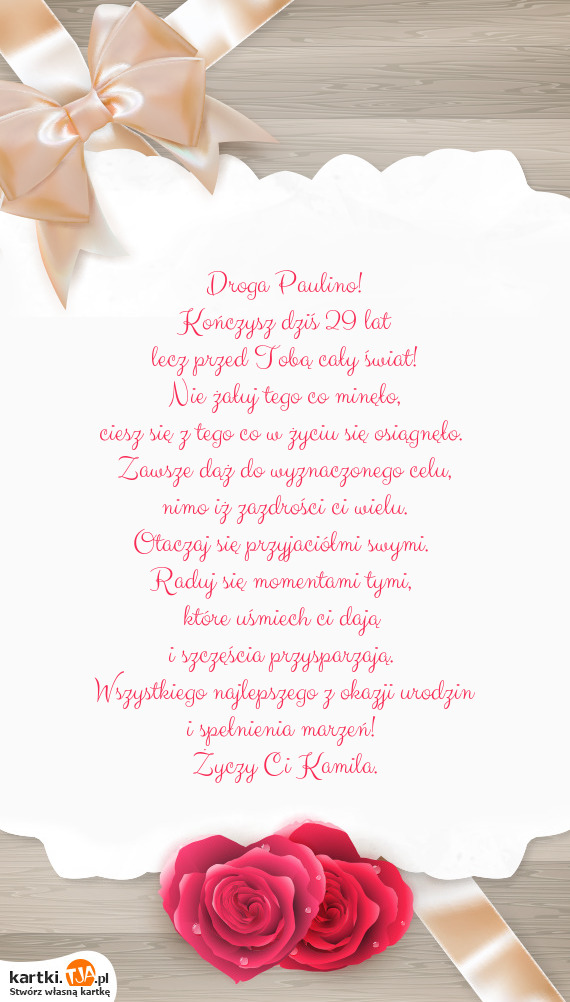 Droga Paulino!
Kończysz dziś 29 lat
lecz przed Tobą cały świat!
Nie żałuj tego co minęło,
ciesz się z tego co w życiu się osiągnęło.
Zawsze dąż do wyznaczonego celu,
nimo iż zazdrości ci wielu.
Otaczaj się przyjaciółmi swymi.
Raduj się momentami tymi,
które uśmiech ci dają
i szczęścia przysparzają.
Wszystkiego najlepszego z okazji urodzin
i spełnienia marzeń!
Życzy Ci Kamila.
kartki.TJA.pl
Stwórz własną kartkę